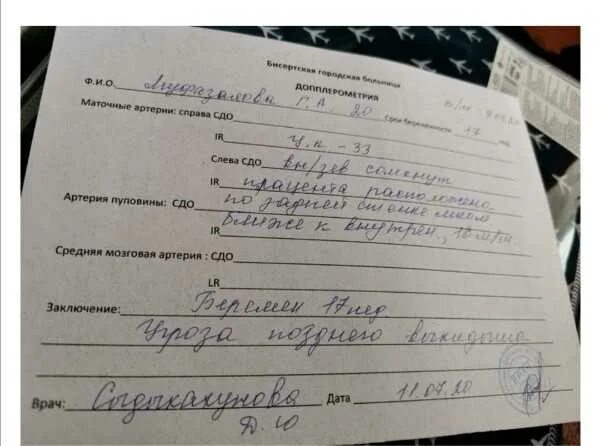 Бисертская городская больница
ДОППЛЕРОМЕТРИЯ
Ф.И.О. Муфазалова Г. А. 20 Срок беременности 17 нед
Маточные артерии: справа СДО
IR Ц.к - 33
Слева СДО вн/зев сомкнут
IR плацента расположена
Артерия пуповины: СДО по задней стенке
IR ближе к внутрен,
Средняя мозговая артерия : СДО
LR
Заключение: Беремен 17 нед.
Угроза позднего выкидыша
Врач: Сыдыкакунова Дата 11.07.20
Д. Ю